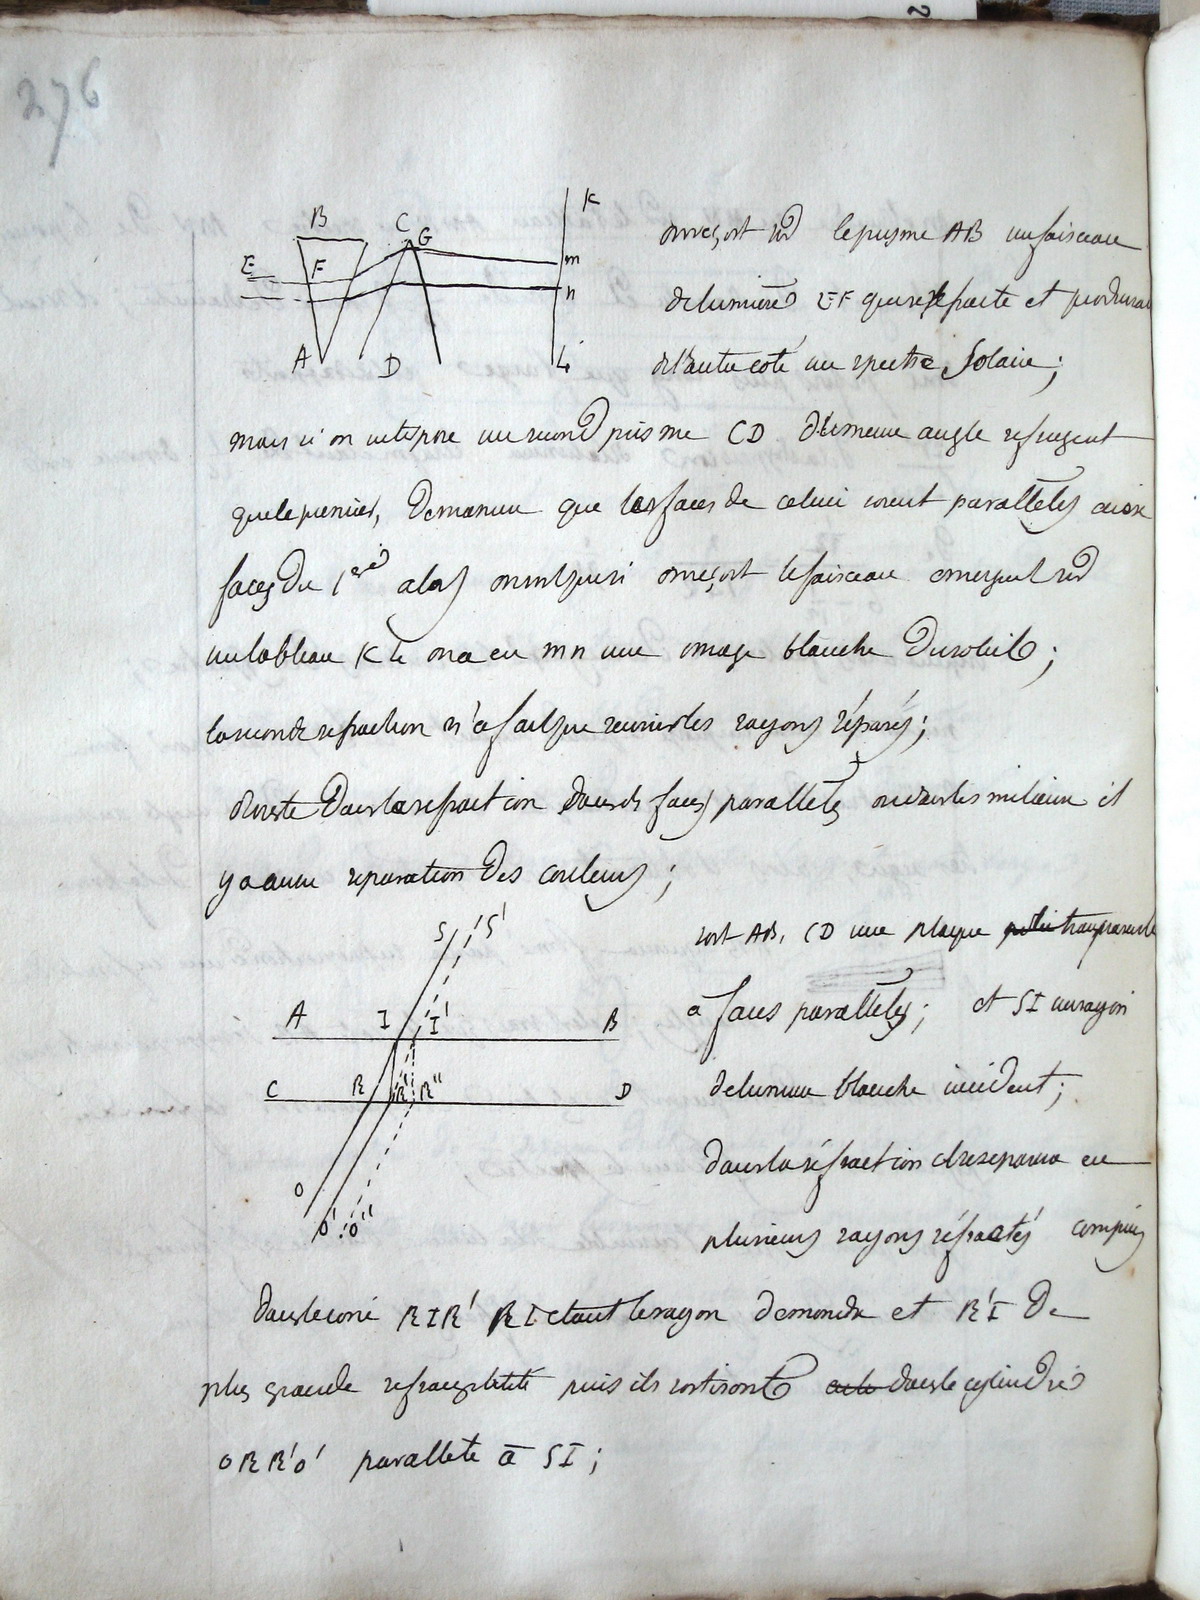 276
B C G K
E F m
n
A D L
on reçoit sur le prisme AB un faisceau
de lumière EF qui se refracte et produirait
de l'autre coté un spectre Solaire ;
mais si on interpose un second prisme CD de meme angle refringent
que le premier, de maniere que les faces de celui ci soient paralleles aux
faces du 1er alors on recoit le faisceau emergent sur
un tableau KL on a en mn une image blanche du soleil ;
la seconde refraction n'a fait que reunir les rayons séparés ;
du reste dans la refraction dans des faces paralleles ou dans les milieux il
y a aussi separation des couleurs ;
S S'
soit AB, CD une plaque transparente
A I I' B
à faces paralleles ; et SI un rayon
C R R' R" D
de lumiere blanche incident ;
dans la réfraction il se separera en
O
O' O"
plusieurs rayons réfractés compris
dans le cone RIR' RI etant le rayon de moindre et R'I de
plus grande refrangibilité puis ils sortiront dans le cylindre
ORR'O' parallele à SI ;